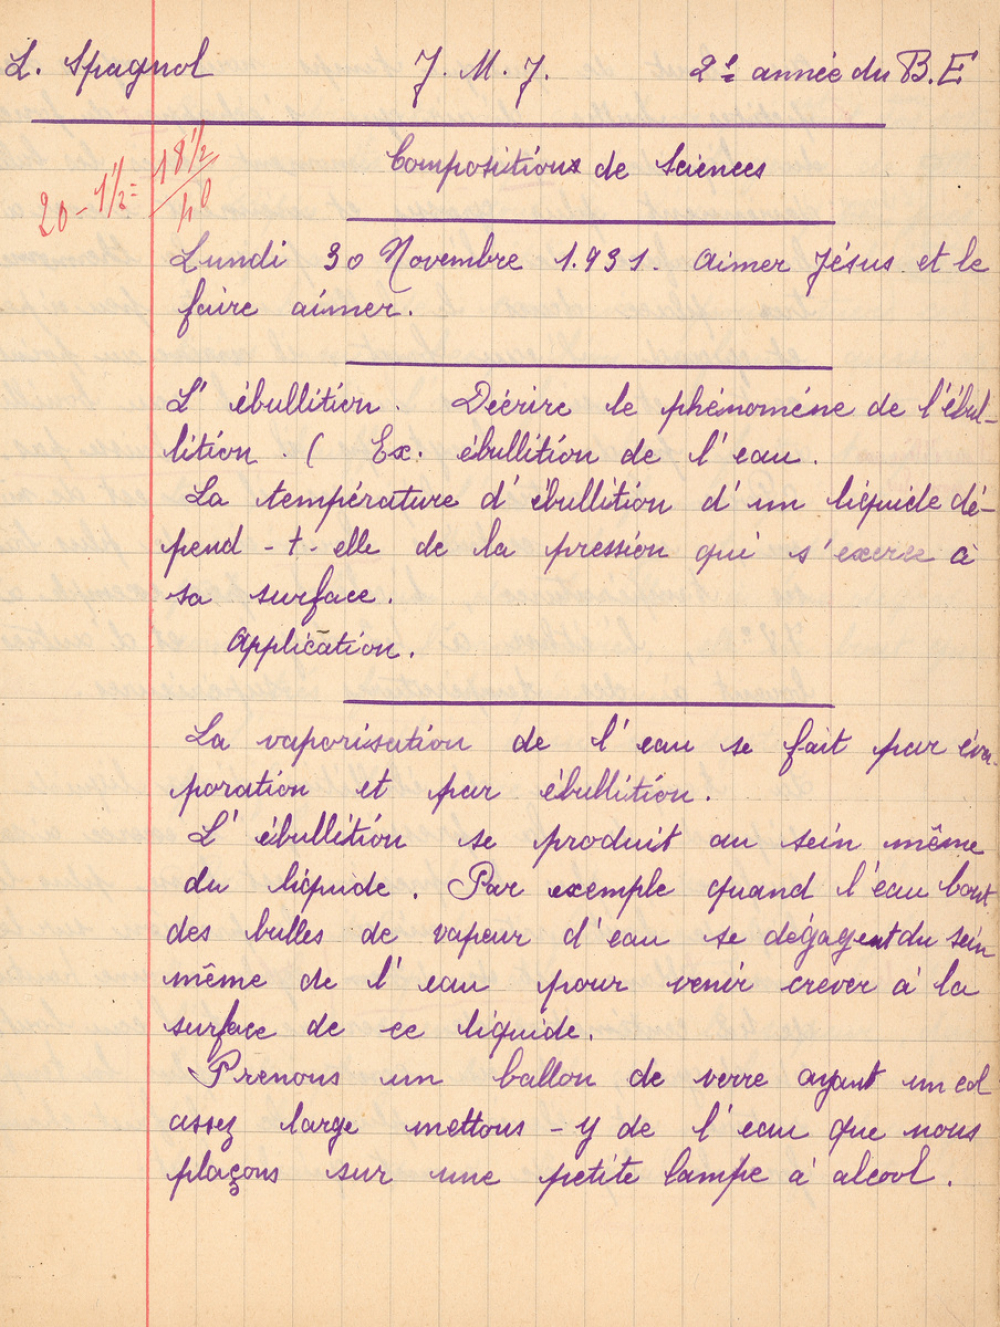 L. Spagnol J. M. J. 2e année du B.E
Compositions de Sciences
20 - 1 1/2 = 18 1/2
Lundi 30 Novembre 1.931. Aimer Jésus et le
faire aimer.
L' ébullition. Décrire le phénomène de l'ébul-
lition. ( Ex. ébullition de l'eau.
La température d'ébullition d'un liquide dé-
pend-t-elle de la pression qui s'exerce à
sa surface.
Application.
La vaporisation de l'eau se fait par éva-
poration et par ébullition.
L'ébullition se produit au sein même
du liquide. Par exemple quand l'eau bout
des bulles de vapeur d'eau se dégagent du sein
même de l'eau pour venir crever à la
surface de ce liquide.
Prenons un ballon de verre ayant un col
assez large mettons-y de l'eau que nous
plaçons sur une petite lampe à alcool.